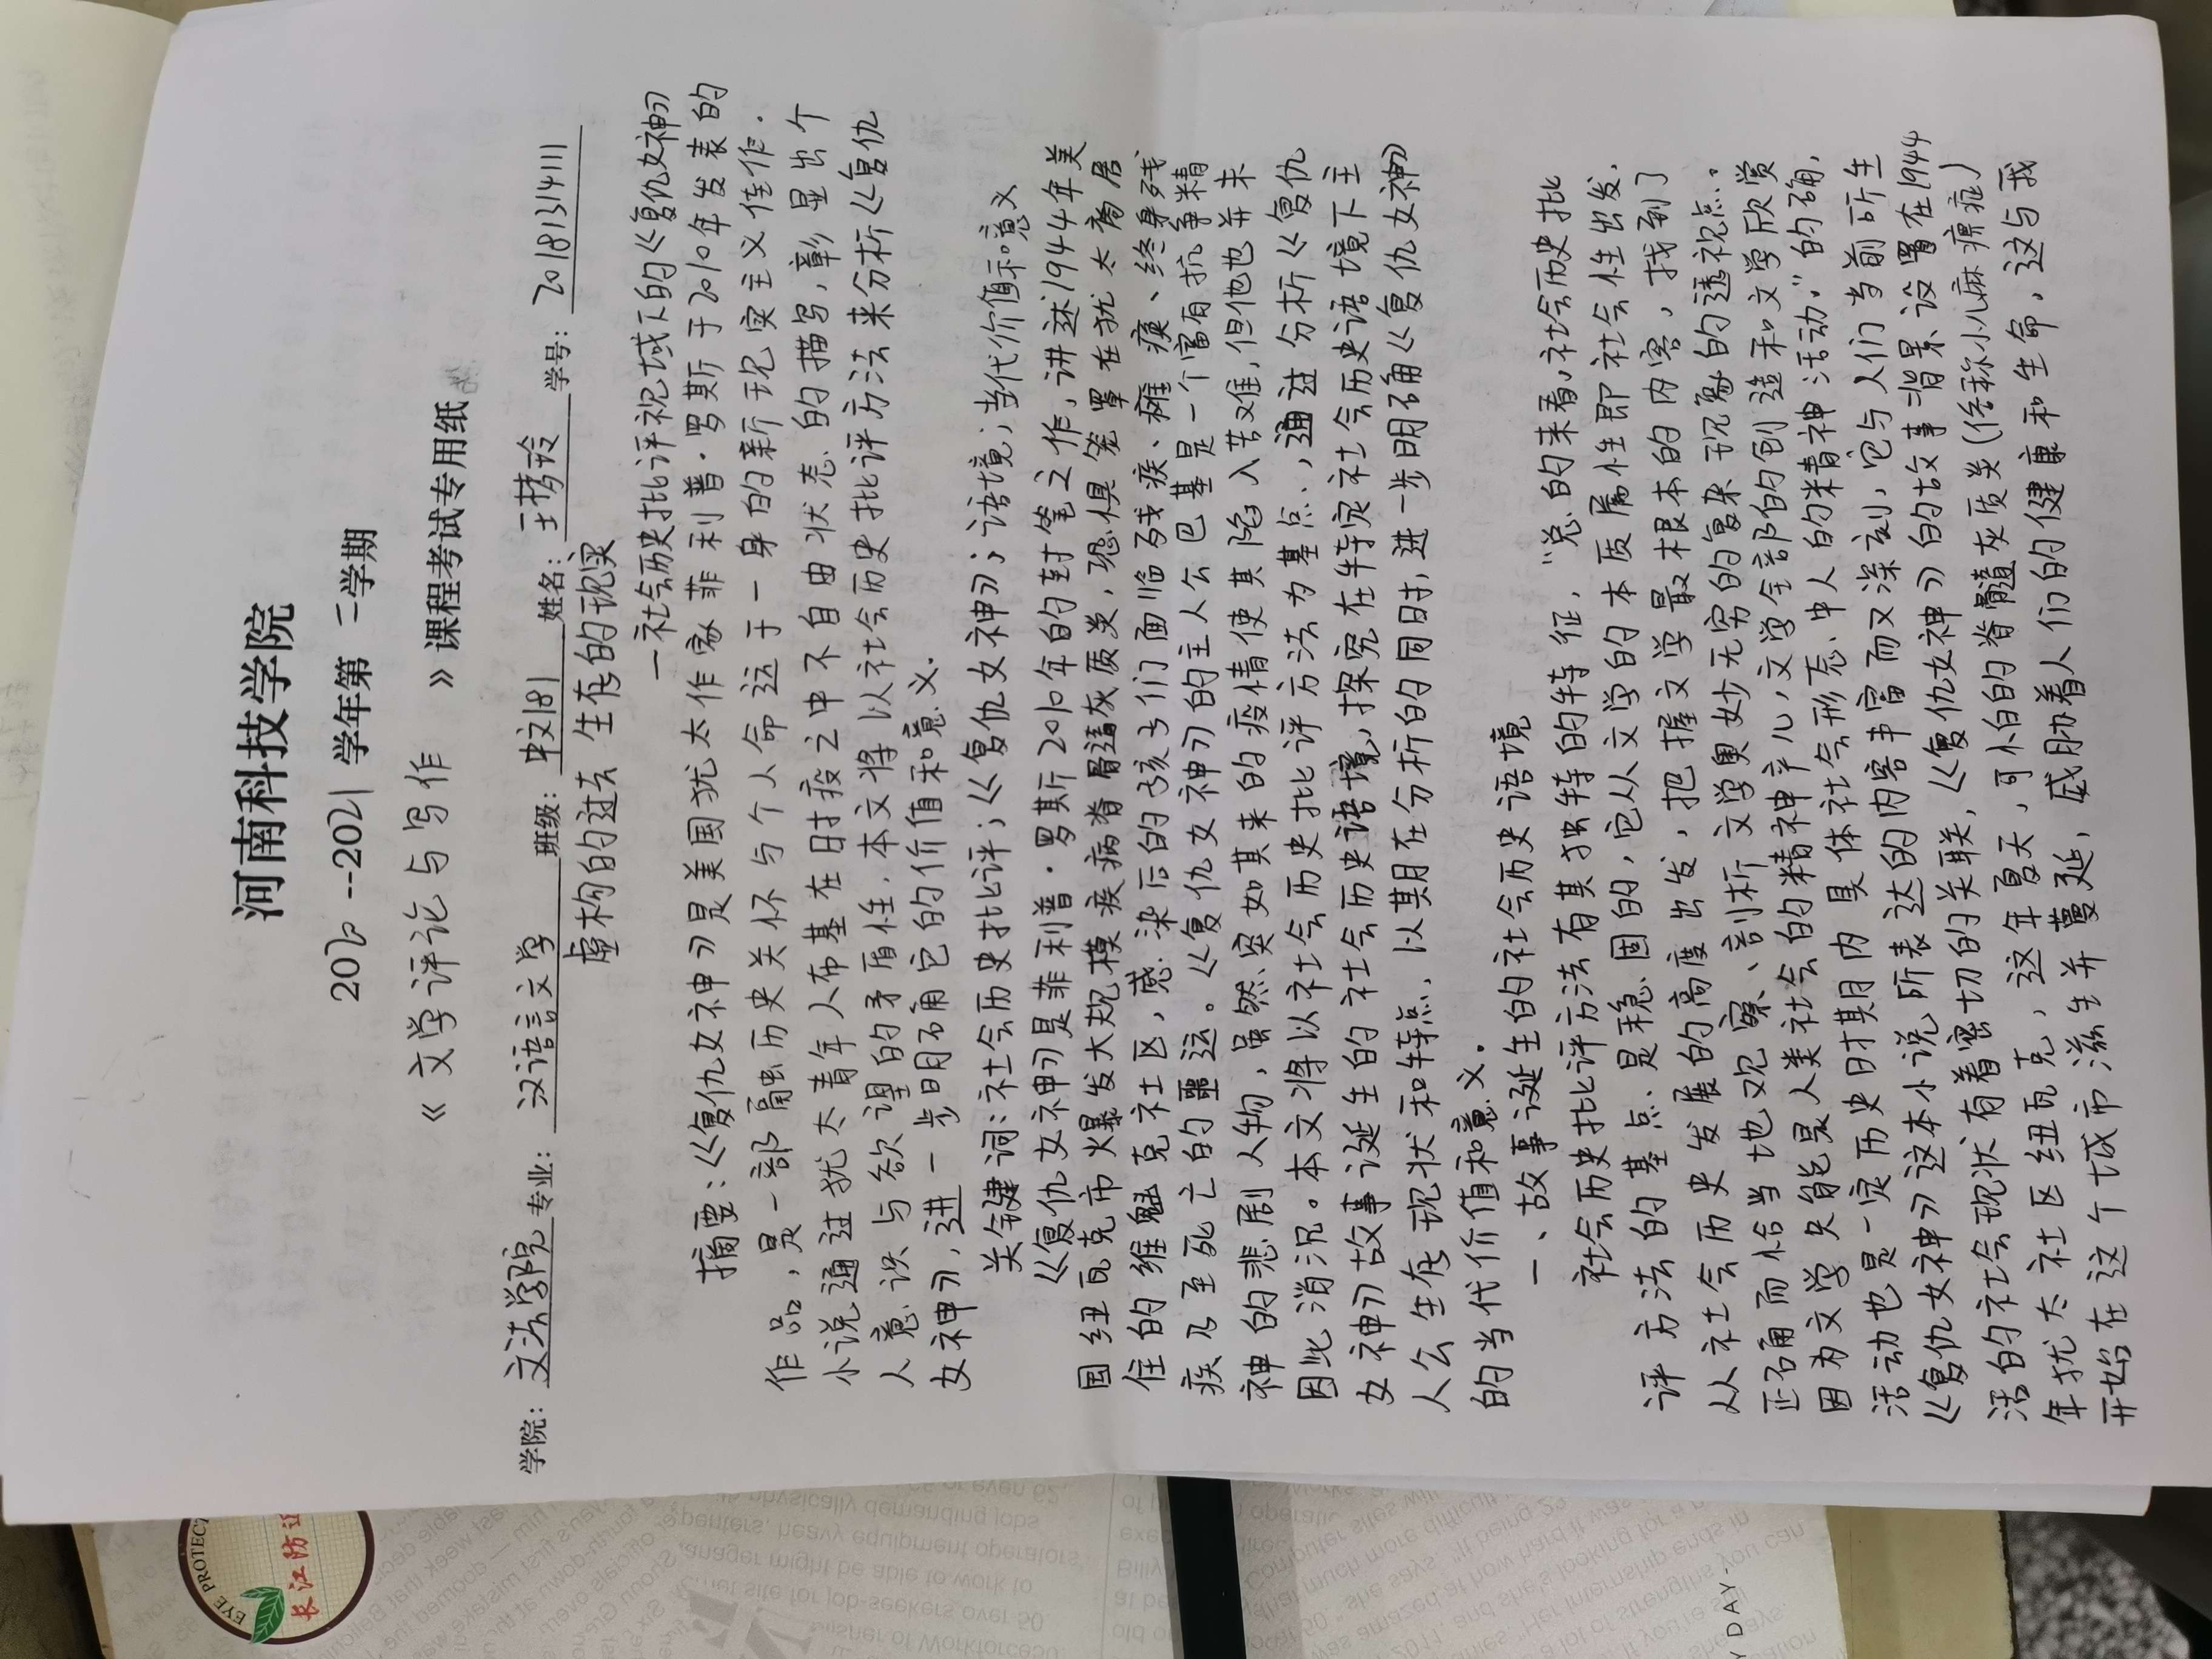 河南科技学院
2020--2021 学年第 二学期
《 文学评论与写作 》课程考试专用纸
学院： 文法学院 专业： 汉语言文学 班级： 中文181 姓名： 学号： 20181314111
虚构的过去 生存的现实
—社会历史批评视域下的《复仇女神》
摘要：《复仇女神》是美国犹太作家菲利普·罗斯于2010年发表的
作品，是一部融历史关怀与个人命运于一身的新现实主义佳作.
小说通过犹太青年人布基在时疫之中不自由状态的描写，彰显出个
人意识与欲望的矛盾性，本文将以社会历史批评方法来分析《复仇
女神》，进一步明确它的价值和意义.
关键词：社会历史批评；《复仇女神》；语境；当代价值和意义
《复仇女神》是菲利普·罗斯2010年的封笔之作，讲述1944年美
国纽瓦克市火爆发大规模疾病脊髓灰质炎，恐惧笼罩在犹太裔居
住的维魁克社区，感染后的孩子们面临残疾、瘫痪、终身残
疾乃至死亡的噩运。《复仇女神》的主人公巴基是一个富有抗争精
神的悲剧人物，虽然突如其来的疫情使其陷入苦难，但他也并未
因此消沉。本文将以社会历史批评方法为基点，通过分析《复仇
女神》故事诞生的社会历史语境，探究在特定社会历史语境下主
人公生存现状和特点，以期在分析的同时，进一步明确《复仇女神》
的当代价值和意义.
一、故事诞生的社会历史语境
社会历史批评方法有其独特的特征，“总的来看，社会历史批
评方法的基点是稳固的，它从文学的本质属性即社会性出发，
从社会历史发展的高度出发，把握文学最根本的内容，找到了
正确而恰当地观察、剖析文学奥妙无穷的复杂现象的透视点。
因为文学只能是人类社会的精神产儿，文学全部的创造和文学欣赏
活动也是一定历史时期内具体社会形态中人的精神活动。”的确，
《复仇女神》这本小说所表达的内容丰富而又深刻，它与人们当前所生
活的社会现状有着密切的关联，《复仇女神》的故事背景设置在1944
年犹太社区纽瓦克，这年夏天，可怕的脊髓灰质炎（俗称小儿麻痹症）
开始在这个城市滋生并蔓延，威胁着人们的健康和生命，这与我
EYE PROTECT
长江防近
physically demanding jobs
penters, heavy equipment operators
anager might be able to work to
net site for job-seekers over 50
isher of Workforce50